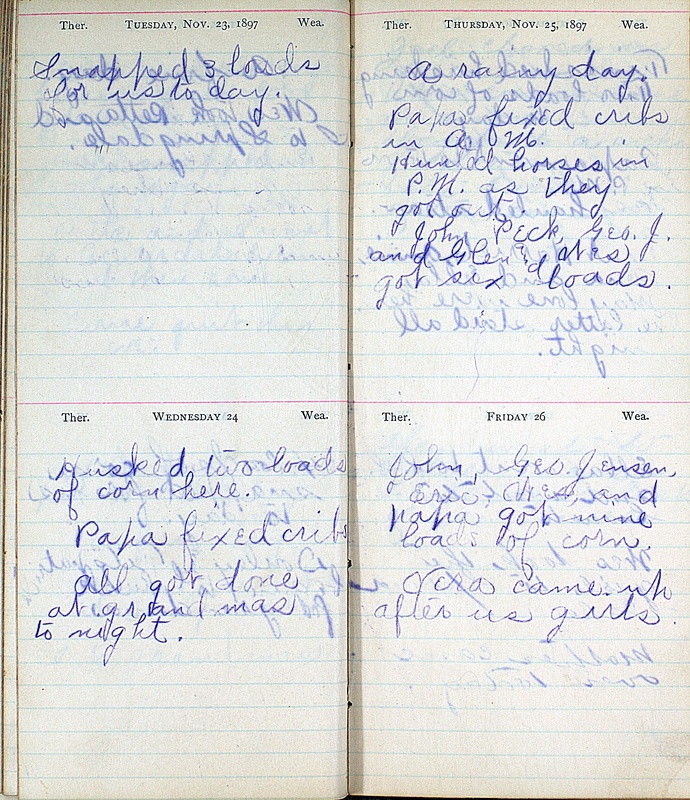 Ther. TUESDAY, NOV. 23, 1897 Wea.
Snapped 3 loads
for us to day.
Ther. WEDNESDAY 24 Wea.
Husked two loads
of corn here.
Papa fixed cribs
all got done
at grant mas
to night.
Ther. THURSDAY, NOV. 25, 1897 Wea.
a rainy day.
Papa fixed cribs
in A. M.
horses in
P.M. as they
got out.
John, Peck, Geo. J.
and Glen, Wes
got six loads.
Ther. FRIDAY 26 Wea.
John, Geo. Jensen,
Wes, and
papa got nine
loads of corn.
came up
after us girls.